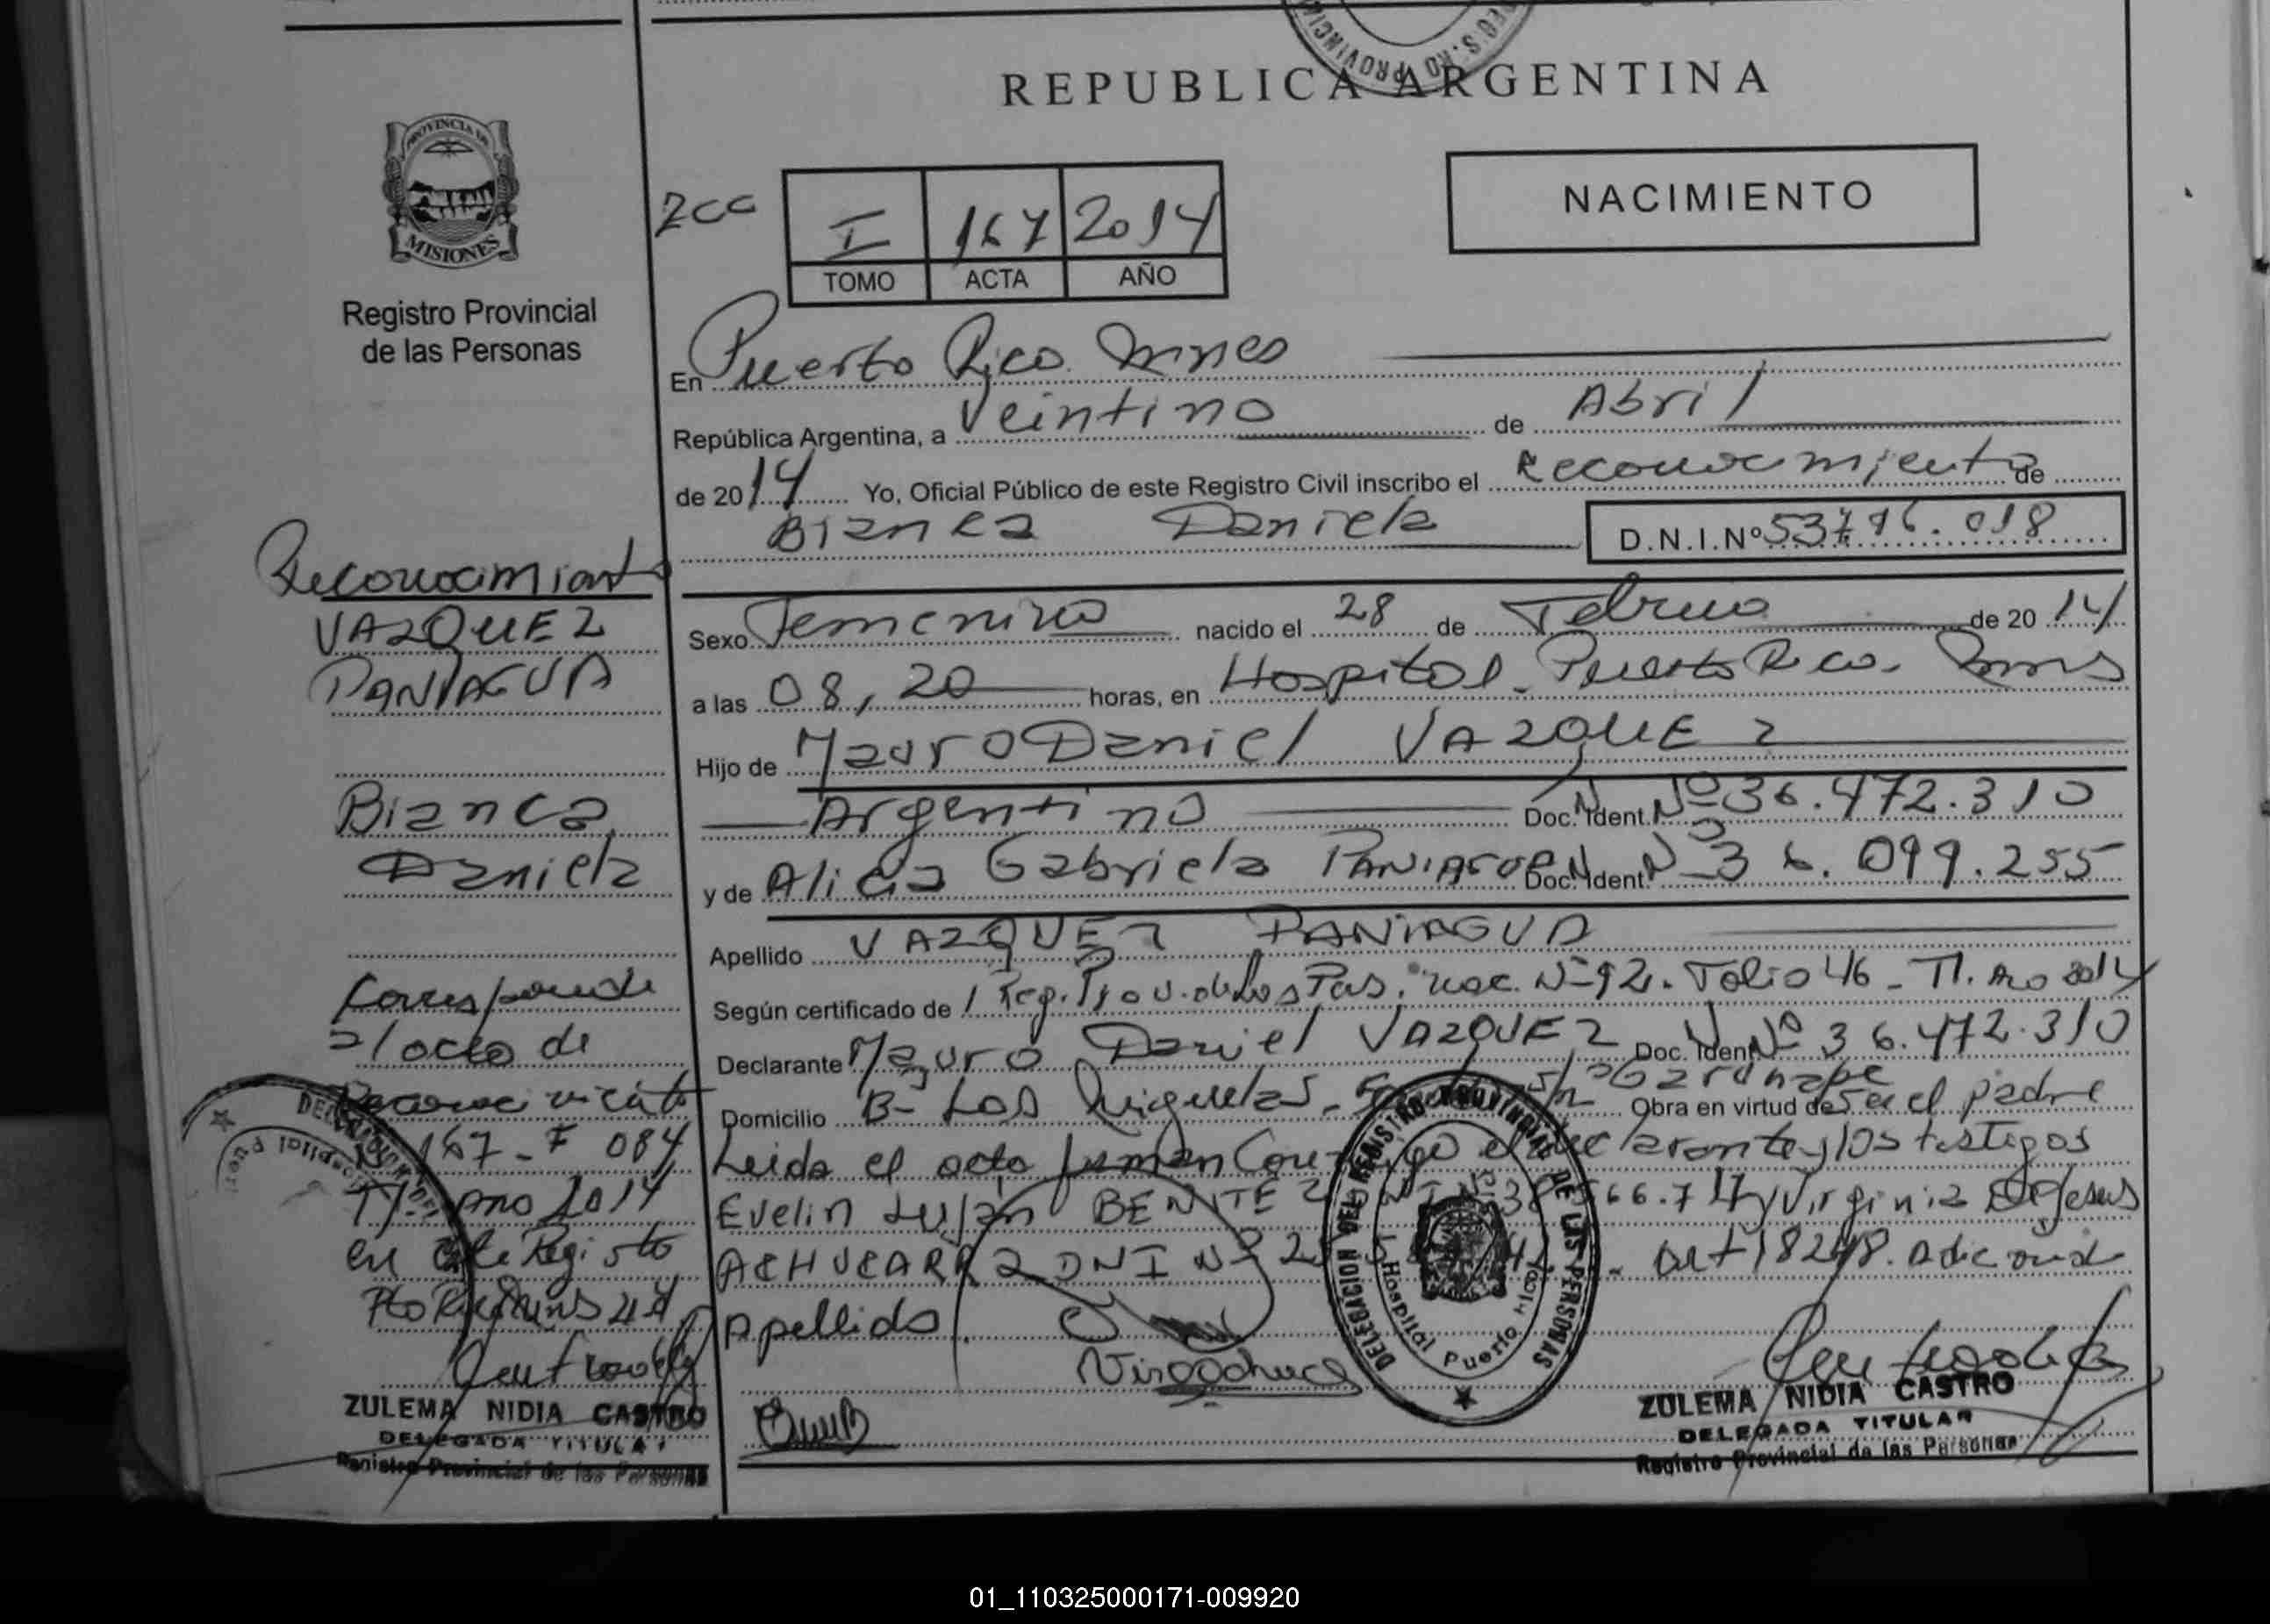 REPUBLICA ARGENTINA
PROVINCIA DE
MISIONES
Registro Provincial
de las Personas
2cc
I 167 2014
TOMO ACTA AÑO
NACIMIENTO
En Puerto Rico Mnes
República Argentina, a Veintiuno de Abril
de 2014 Yo, Oficial Público de este Registro Civil inscribo el Reconocimiento de
Bianca Daniela D.N.I.Nº
Sexo Femenino nacido el 28 de Febrero de 2014
a las 08,20 horas, en Hospital Puerto Rico. Mnes
Hijo de Mauro Daniel VAZQUEZ
Argentino Doc. Ident. Nº 36.472.310
y de Alicia Gabriela PANIAGUA Doc. Ident. Nº 36.099.255
Apellido VAZQUEZ PANIAGUA
Según certificado de / Reg. Prov. de Las Pers. nac. Nº 92. Folio 46 - T1. Año 2014
Declarante Mauro Daniel VAZQUEZ Doc. Ident. Nº 36.472.310
Domicilio Bº Los s/n Obra en virtud de Ser el padre
Leida el acta firman Conmigo el declarante y los testigos
Evelin Luján BENITEZ y Virginia
DNI Nº 18248. Adic
Apellido.
Reconocimiento
VAZQUEZ
PANIAGUA
Bianca
Daniela
Corresponde
al acta de
Reconocimiento
167 - F 084
T1. Año 2014
en este Registro
ZULEMA NIDIA CASTRO
DELEGADA TITULAR
Registro Provincial de las Personas
DELEGACION DEL REGISTRO PROVINCIAL DE LAS PERSONAS
Hospital Puerto Rico
ZULEMA NIDIA CASTRO
DELEGADA TITULAR
Registro Provincial de las Personas
01_110325000171-009920